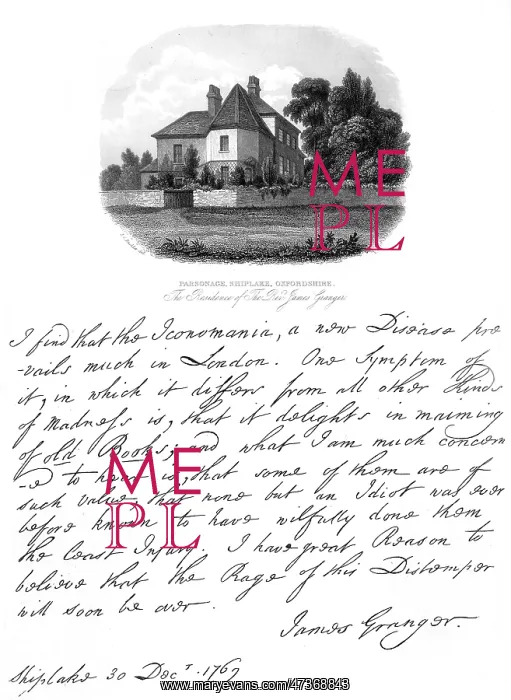 ME
PL
PARSONAGE, SHIPLAKE, OXFORDSHIRE.
The Residence of The Revd. James Granger.
I find that the Iconomania, a new Disease pre
-vails much in London. One Symptom of
it, in which it differs from all other Kinds
of Madness is, that it delights in maiming
of old Books; and what I am much concern
-ed to hear is, that some of them are of
such value that none but an Idiot was ever
before known to have wilfully done them
the least Injury. I have great Reason to
believe that the Rage of this Distemper
will soon be over.
ME
PL
James Granger.
Shiplake 30 Decr. 1769
www.maryevans.com/47368843